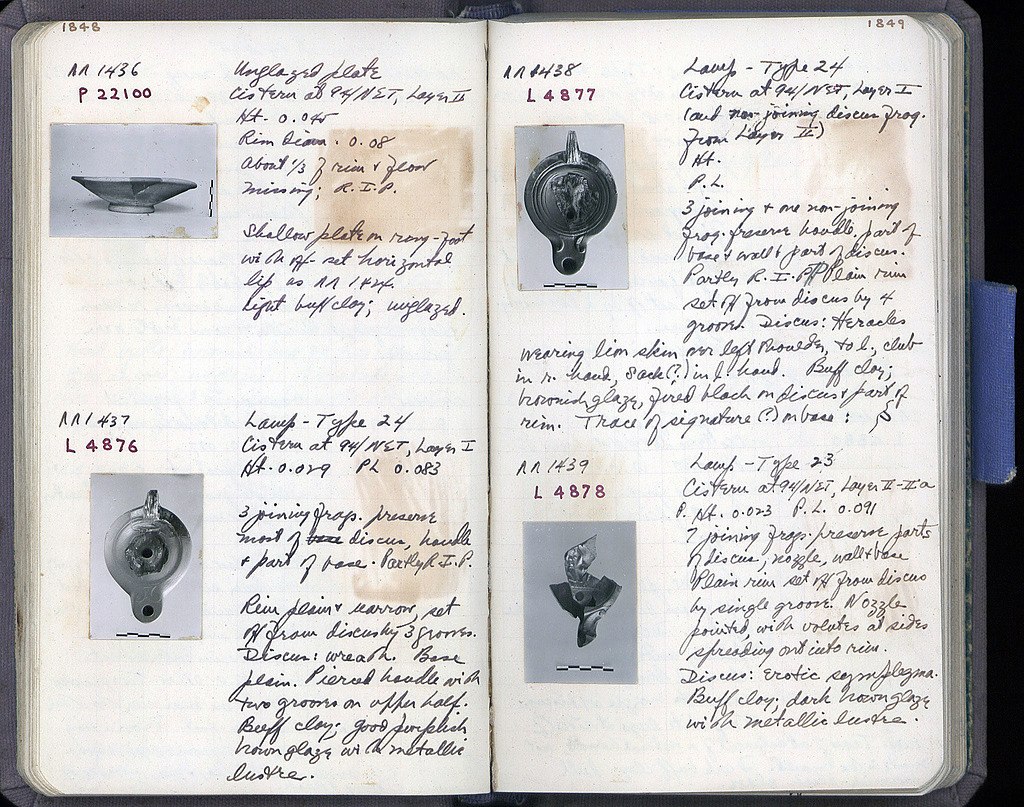 1848
ΛΛ 1436
P 22100
Unglazed plate
Cistern at 94/NET, Layer II
Ht. 0.045
Rim Diam. 0.08
About 1/3 of rim & floor
missing; R.I.P.
Shallow plate on ring-foot
with off-set horizontal
lip as ΛΛ
light buff clay; unglazed.
ΛΛ 1437
L 4876
Lamp - Type 24
Cistern at 94/NET, Layer I
Ht. 0.029 PL 0.083
3 joining frags. preserve
most of base discus, handle
& part of base. Partly R.I.P.
Rim plain & narrow, set
off from discus by 3 grooves.
Discus: wreath. Base
plain. Pierced handle with
two grooves on upper half.
Buff clay; good purplish
brown glaze with metallic
lustre.
1849
ΛΛ 1438
L 4877
Lamp - Type 24
Cistern at 94/NET, Layer I
(and non-joining discus frag.
from Layer II)
Ht.
P.L.
3 joining & one non-joining
frag. preserve handle, part of
base & wall & part of discus.
Partly R.I.P. Plain rim
set off from discus by 4
grooves. Discus: Heracles
wearing lion skin over left shoulder, to l., club
in r. hand, sack(?) in l. hand. Buff clay;
brownish glaze, fired black on discus & part of
rim. Trace of signature (?) on base:
ΛΛ 1439
L 4878
Lamp - Type 23
Cistern at 94/NET, Layer II-IIa
P. Ht. 0.023 P.L. 0.091
7 joining frags. preserve parts
of discus, nozzle, wall & base
Plain rim set off from discus
by single groove. Nozzle
pointed, with volutes at sides
spreading out into rim.
Discus: erotic symplegma.
Buff clay; dark brown glaze
with metallic lustre.